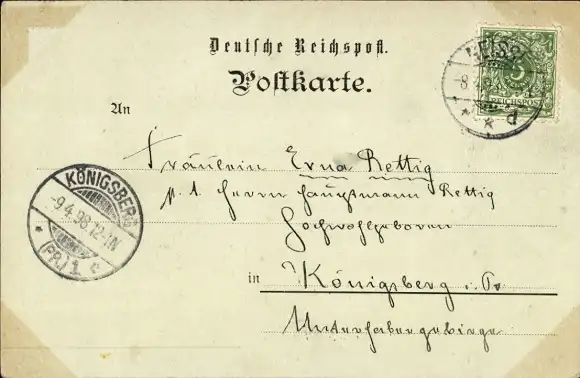 Deutsche Reichspost.
Postkarte.
An
Fräulein Erna Rettig
p. A. Herrn Hauptmann Rettig
Hochwohlgeboren
in Königsberg i. Pr.
Unterhaberg
KÖNIGSBERG
-9.4.98.12-1N
(PR.) 1 c
5
REICHSPOST
d